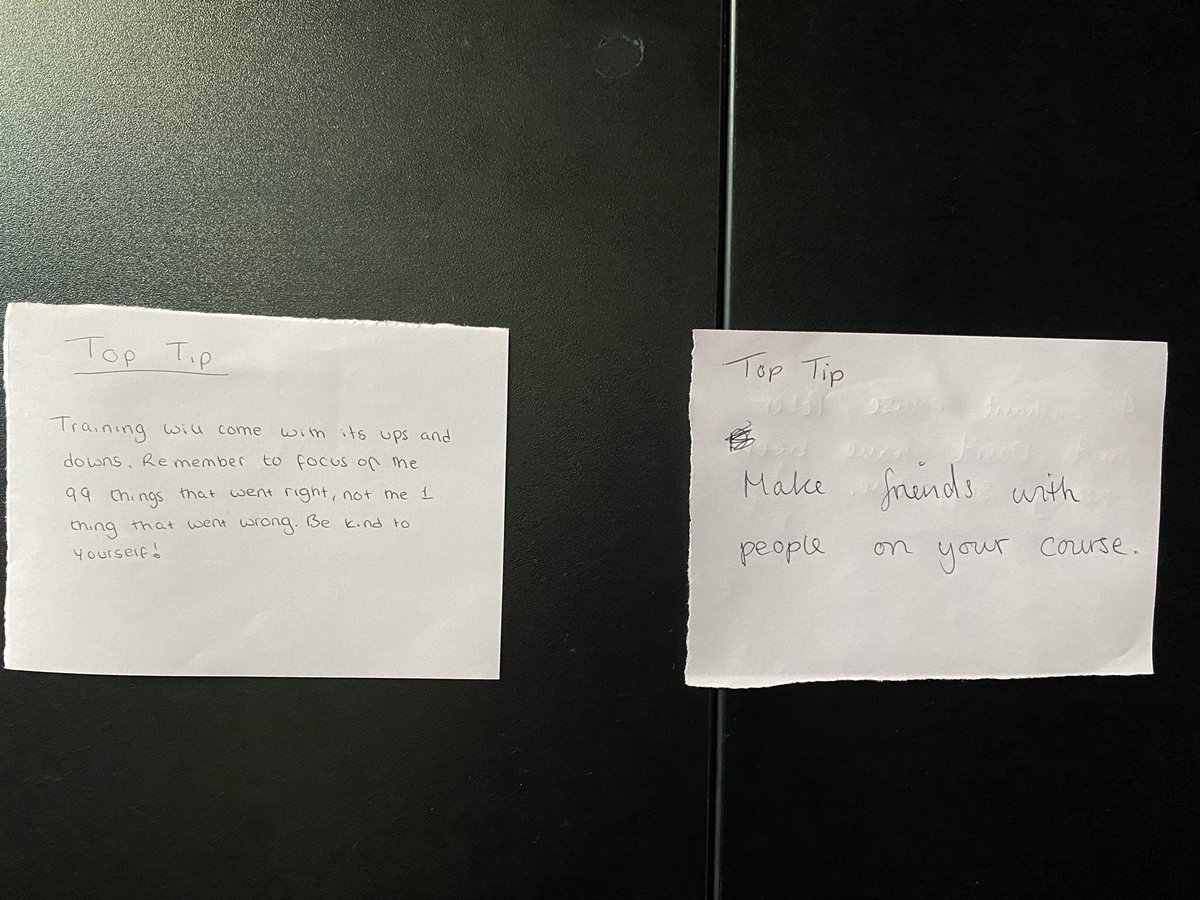 Top Tip
Training will come with its ups and
downs. Remember to focus on the
99 things that went right, not the 1
thing that went wrong. Be kind to
yourself!
Top Tip
Make friends with
people on your course.